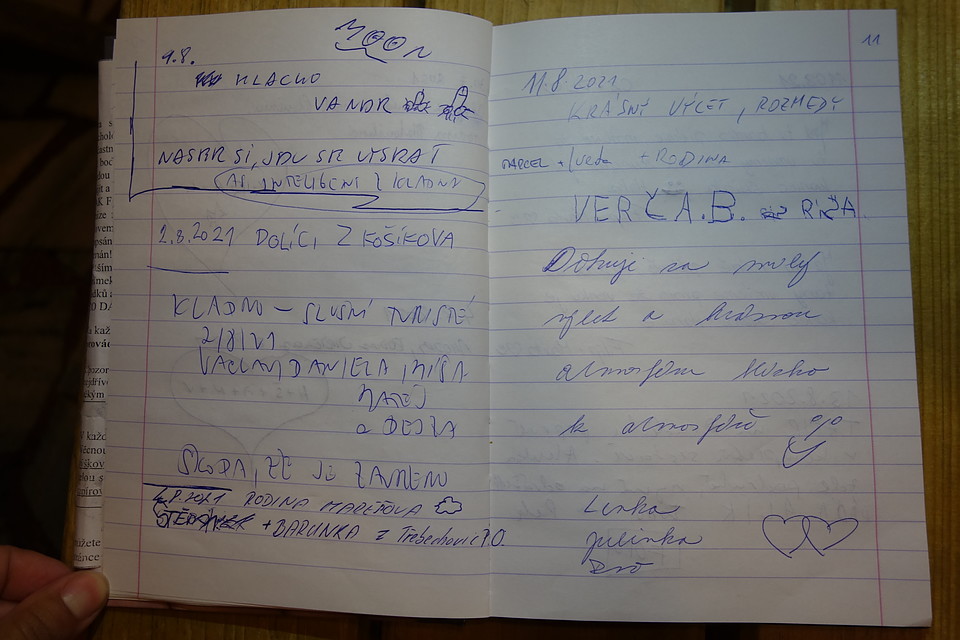 MOON
9.8.
HLACHO
VANDR
NASER SI, JDU SE VYSRAT
INTELIGENT Z KLADNA
2.8.2021 DOLÍCI Z KOŠÍKOVA
KLADNO – SLUŠNÍ TURISTÉ
2/8/21
VÁCLAV, DANIELA, MÍŠA
MATĚJ
a
ŠKODA, ŽE JE ZAVŘENO
RODINA MAREŠOVA
+ BARUNKA z Třebechovic P.O.
11
11.8.2021
KRÁSNÝ VÝLET, ROZHLEDY
MARCEL + + RODINA
VERČA.B.
Děkuji za milý
výlet a krásnou
atmosféru blízko
k atmosféře
Lenka
Julinka